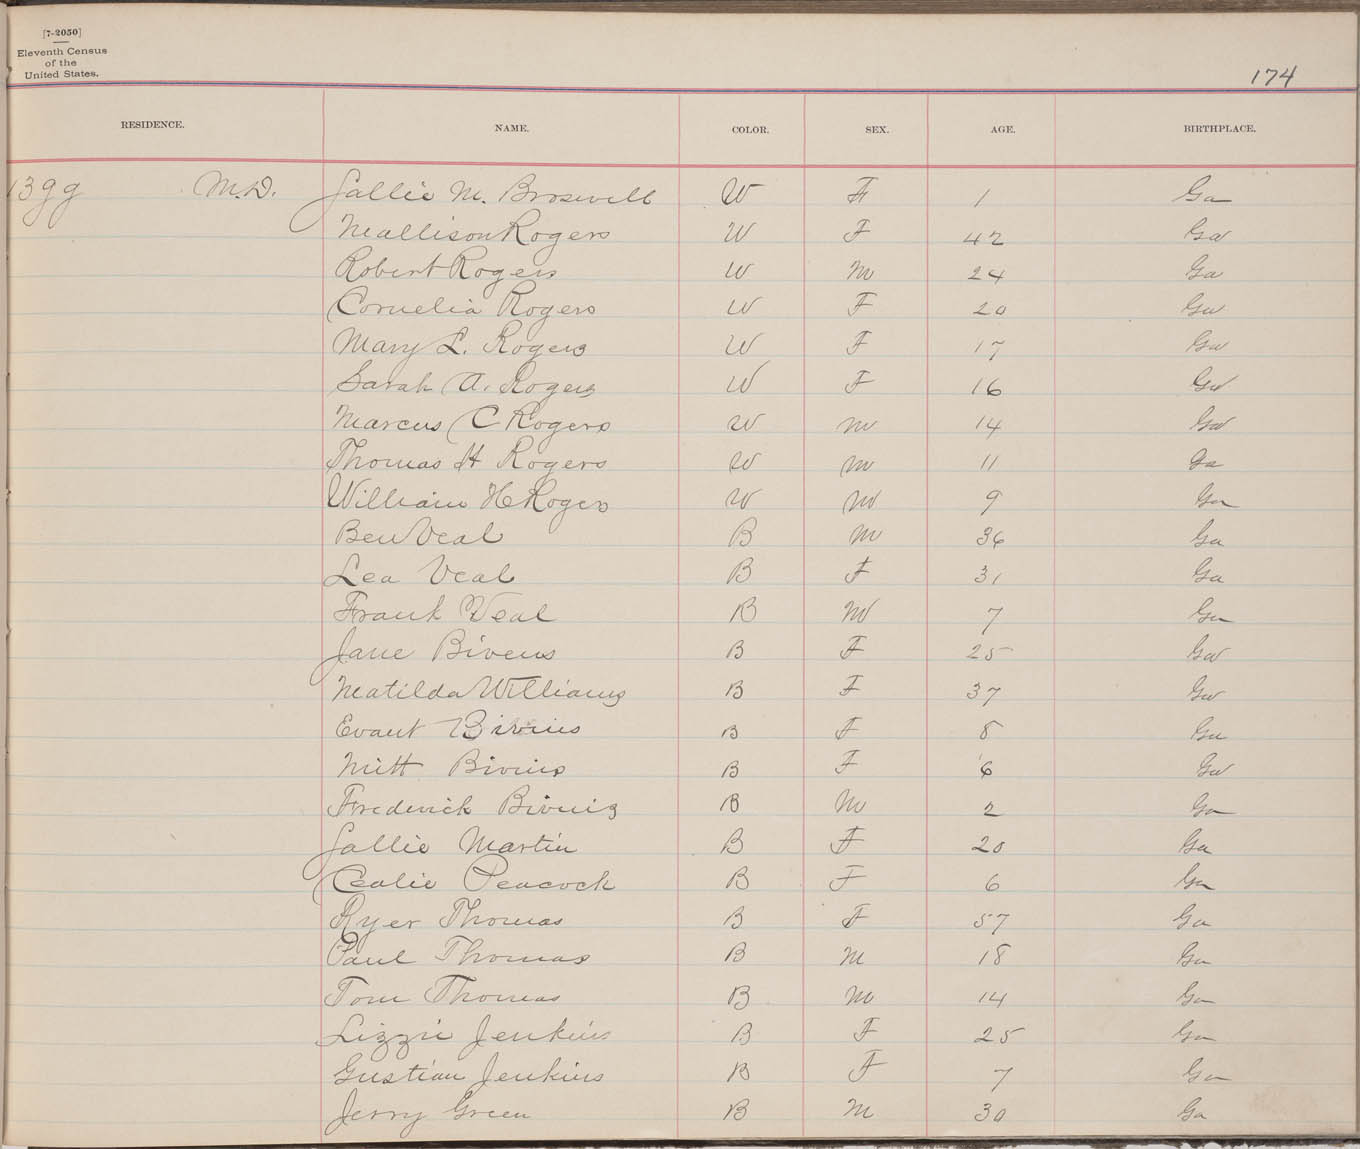 [7-2050]
Eleventh Census
of the
United States.
174
RESIDENCE. NAME. COLOR. SEX. AGE. BIRTHPLACE.
M.D. Sallie M. W F 1 Ga
Mallison Rogers W F 42 Ga
Robert Rogers W M 24 Ga
Cornelia Rogers W F 20 Ga
Mary L. Rogers W F 17 Ga
Sarah A. Rogers W F 16 Ga
Marcus C Rogers W M 14 Ga
Thomas H Rogers W M 11 Ga
William H Rogers W M 9 Ga
Ben Veal B M 36 Ga
Lea Veal B F 31 Ga
Frank Veal B M 7 Ga
Jane Bivens B F 25 Ga
Matilda Williams B F 37 Ga
Evant Bivins B F 8 Ga
Mitt Bivins B F 6 Ga
Frederick Bivins B M 2 Ga
Sallie Martin B F 20 Ga
Cealie Peacock B F 6 Ga
Ryer Thomas B F 57 Ga
Paul Thomas B M 18 Ga
Tom Thomas B M 14 Ga
Lizzie Jenkins B F 25 Ga
Gustian Jenkins B F 7 Ga
Jerry Green B M 30 Ga